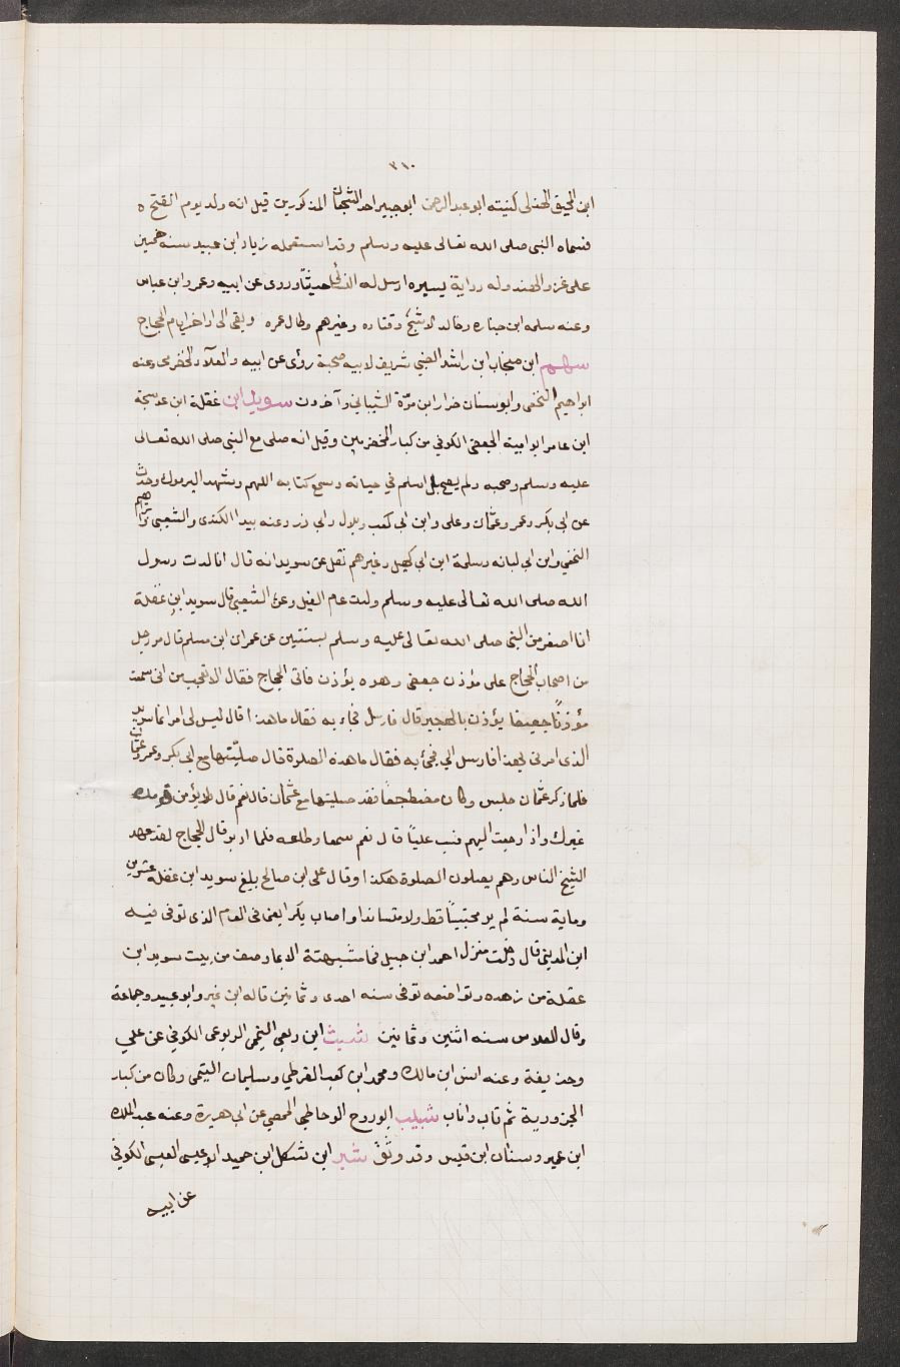 ٣١٠
ابن المحبق الهذلي كنيته ابو عبدالرحمن ابو جبير احد الشجعان المذكورين قيل انه ولد يوم الفتح
فسماه النبى صلى الله تعالى عليه وسلم وقد استعمله زياد ابن عبيد سنه خمسين
على غزو الهند وله رواية يسيره ارسل له النسائى حديثا وروى عن ابيه وعمر وابن عباس
وعنه سلمه ابن جناره وخالد الاشج وقتاده وغيرهم وطال عمره وبقى الى اواخر ايام الحجاج
سهم ابن منجاب ابن راشد الضبي شريف لابيه صحبة روى عن ابيه والعلآء الحضرمى وعنه
ابراهيم النخعى وابو سنان ضرار ابن مرّة الشيبانى وآخرون سويد ابن غفلة ابن عوسجة
ابن عامر ابو امية الجعفى الكوفي من كبار المخضرمين وقيل انه صلى مع النبى صلى الله تعالى
عليه وسلم وصحبه ولم يصح بل اسلم في حياته وسمع كتابه اليهم وشهد اليرموك وحدث
عن ابى بكر وعمر وعثمان وعلى وابن ابى كعب وبلال وابى ذر وعنه الكندى والشعبى وابراهيم
النخعي وابن ابى لبانه وسلمة ابن ابى كهيل وغيرهم نقل عن سويد انه قال انا لدت رسول
الله صلى الله تعالى عليه وسلم ولدت عام الفيل وعن الشعبى قال سويد ابن غفلة
انا اصغر من النبى صلى الله تعالى عليه وسلم بسنتين عن عمران ابن مسلم قال مر رجل
من اصحاب الحجاج على مؤذن جعفى وهوه يؤذن فاتى الحجاج فقال الا تعجب من انى سمعت
مؤذنًا جعيفا يؤذن بالهجير قال فارسل فجاء به فقال ما هذا قال ليس لى امر انما سويد
الذى امرنى بهذا فارسل الي فجئ به فقال ما هذه الصلوة قال صليتها مع ابى بكر وعمر وعثمان
فلما ذكر عثمان جلس وكان مضطجعا فقد صليتها مع عثمان قال نعم قال لا يؤمن قومك
غيرك واذا رجعت اليهم فسب عليّا قال نعم سمعا وطاعه فلما ادبر قال الحجاج لقد عهد
الشيخ الناس وهم يصلون الصلوة هكذا وقال على ابن صالح بلغ سويد ابن غفله عشرين
وماية سنة لم ير محتبيًا قط ولا متساندا واصاب بكرا يعنى فى العام الذى توفى فيه
ابن المدينى قال دخلت منزل احمد ابن حنبل فما شبهته الا بما وصف من بيت سويد ابن
غفلة من زهده وتواضعه توفى سنه احدى وثمانين قاله ابن نمير وابو عبيد وجماعة
وقال الفلاس سنه اثنين وثمانين شبث ابن ربعى التيمى اليربوعى الكوفي عن علي
وحذيفة وعنه انس ابن مالك ومحمد ابن كعب القرظي وسليمان التيمى وكان من كبار
الحزورية ثم تاب واناب شبيب ابو روح الوحاظي الحمصي عن ابى هريرة وعنه عبد الملك
ابن عمير وسنان ابن قيس وقد وثق شتير ابن شكل ابن حميد ابو عيسى العبسى الكوفي
عن ابيه